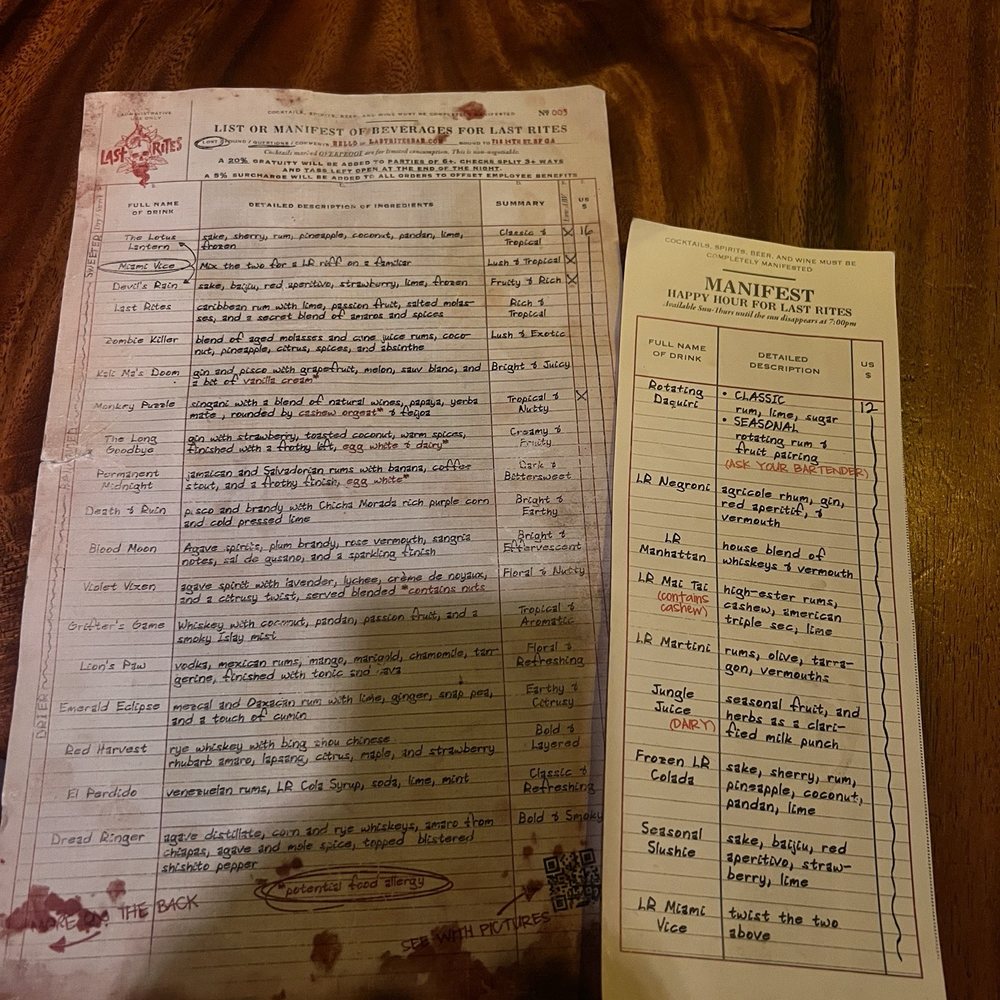 ADMINISTRATIVE
USE ONLY
LAST RITES
COCKTAILS, SPIRITS, BEER, AND WINE MUST BE COMPLETELY MANIFESTED
Nº 003
LIST OR MANIFEST OF BEVERAGES FOR LAST RITES
LOST & FOUND / QUESTIONS / COMMENTS HELLO @ LASTRITESBAR.COM BOUND TO 718 14TH ST. SF CA
Cocktails marked OVERPROOF are for limited consumption. This is non-negotiable.
A 20% GRATUITY WILL BE ADDED TO PARTIES OF 6+. CHECKS SPLIT 3+ WAYS
AND TABS LEFT OPEN AT THE END OF THE NIGHT.
A 5% SURCHARGE WILL BE ADDED TO ALL ORDERS TO OFFSET EMPLOYEE BENEFITS
FULL NAME
OF DRINK
DETAILED DESCRIPTION OF INGREDIENTS
SUMMARY
Low ABV
US
$
SWEETER
The Lotus
Lantern
sake, sherry, rum, pineapple, coconut, pandan, lime,
frozen
Classic &
Tropical
X
16
Miami Vice
Mix the two for a LR riff on a familiar
Lush & Tropical
X
Devil's Rain
sake, baijiu, red aperitivo, strawberry, lime, frozen
Fruity & Rich
X
Last Rites
caribbean rum with lime, passion fruit, salted molas-
ses, and a secret blend of amaros and spices
Rich &
Tropical
Zombie Killer
blend of aged molasses and cane juice rums, coco-
nut, pineapple, citrus, spices, and absinthe
Lush & Exotic
Kali Ma's Doom
gin and pisco with grapefruit, melon, sauv blanc, and
a bit of vanilla cream*
Bright & Juicy
Monkey Puzzle
singani with a blend of natural wines, papaya, yerba
mate, rounded by cashew orgeat* & feijoa
Tropical &
Nutty
X
The Long
Goodbye
gin with strawberry, toasted coconut, warm spices,
finished with a frothy left, egg white & dairy*
Creamy &
Fruity
Permanent
Midnight
jamaican and Salvadorian rums with banana, coffee
stout, and a frothy finish, egg white*
Dark &
Bittersweet
Death & Ruin
pisco and brandy with Chicha Morada rich purple corn
and cold pressed lime
Bright &
Earthy
Blood Moon
Agave spirits, plum brandy, rose vermouth, sangria
notes, sal de gusano, and a sparkling finish
Bright &
Effervescent
Violet Vixen
agave spirit with lavender, lychee, crème de noyaux,
and a citrusy twist, served blended *contains nuts
Floral & Nutty
Grifter's Game
Whiskey with coconut, pandan, passion fruit, and a
smoky Islay mist
Tropical &
Aromatic
Lion's Paw
vodka, mexican rums, mango, marigold, chamomile, tan-
gerine, finished with tonic and cava
Floral &
Refreshing
DRIER
Emerald Eclipse
mezcal and Oaxacan rum with lime, ginger, snap pea,
and a touch of cumin
Earthy &
Citrusy
Red Harvest
rye whiskey with bing shou chinese
rhubarb amaro, lapsang, citrus, maple, and strawberry
Bold &
Layered
El Perdido
venezuelan rums, LR Cola Syrup, soda, lime, mint
Classic &
Refreshing
Dread Ringer
agave distillate, corn and rye whiskeys, amaro from
chiapas, agave and mole spice, topped blistered
shishito pepper
Bold & Smoky
*potential food allergy
MORE ON THE BACK
SEE WITH PICTURES
COCKTAILS, SPIRITS, BEER, AND WINE MUST BE
COMPLETELY MANIFESTED
MANIFEST
HAPPY HOUR FOR LAST RITES
Available Sun-Thurs until the sun disappears at 7:00pm
FULL NAME
OF DRINK
DETAILED
DESCRIPTION
US
$
Rotating
Daquiri
• CLASSIC
rum, lime, sugar
• SEASONAL
rotating rum &
fruit pairing
(ASK YOUR BARTENDER)
12
LR Negroni
agricole rhum, gin,
red aperitif, &
vermouth
LR
Manhattan
house blend of
whiskeys & vermouth
LR Mai Tai
(contains
cashew)
high-ester rums,
cashew, american
triple sec, lime
LR Martini
rums, olive, tarra-
gon, vermouths
Jungle
Juice
(DAIRY)
seasonal fruit, and
herbs as a clari-
fied milk punch
Frozen LR
Colada
sake, sherry, rum,
pineapple, coconut,
pandan, lime
Seasonal
Slushie
sake, baijiu, red
aperitivo, straw-
berry, lime
LR Miami
Vice
twist the two
above